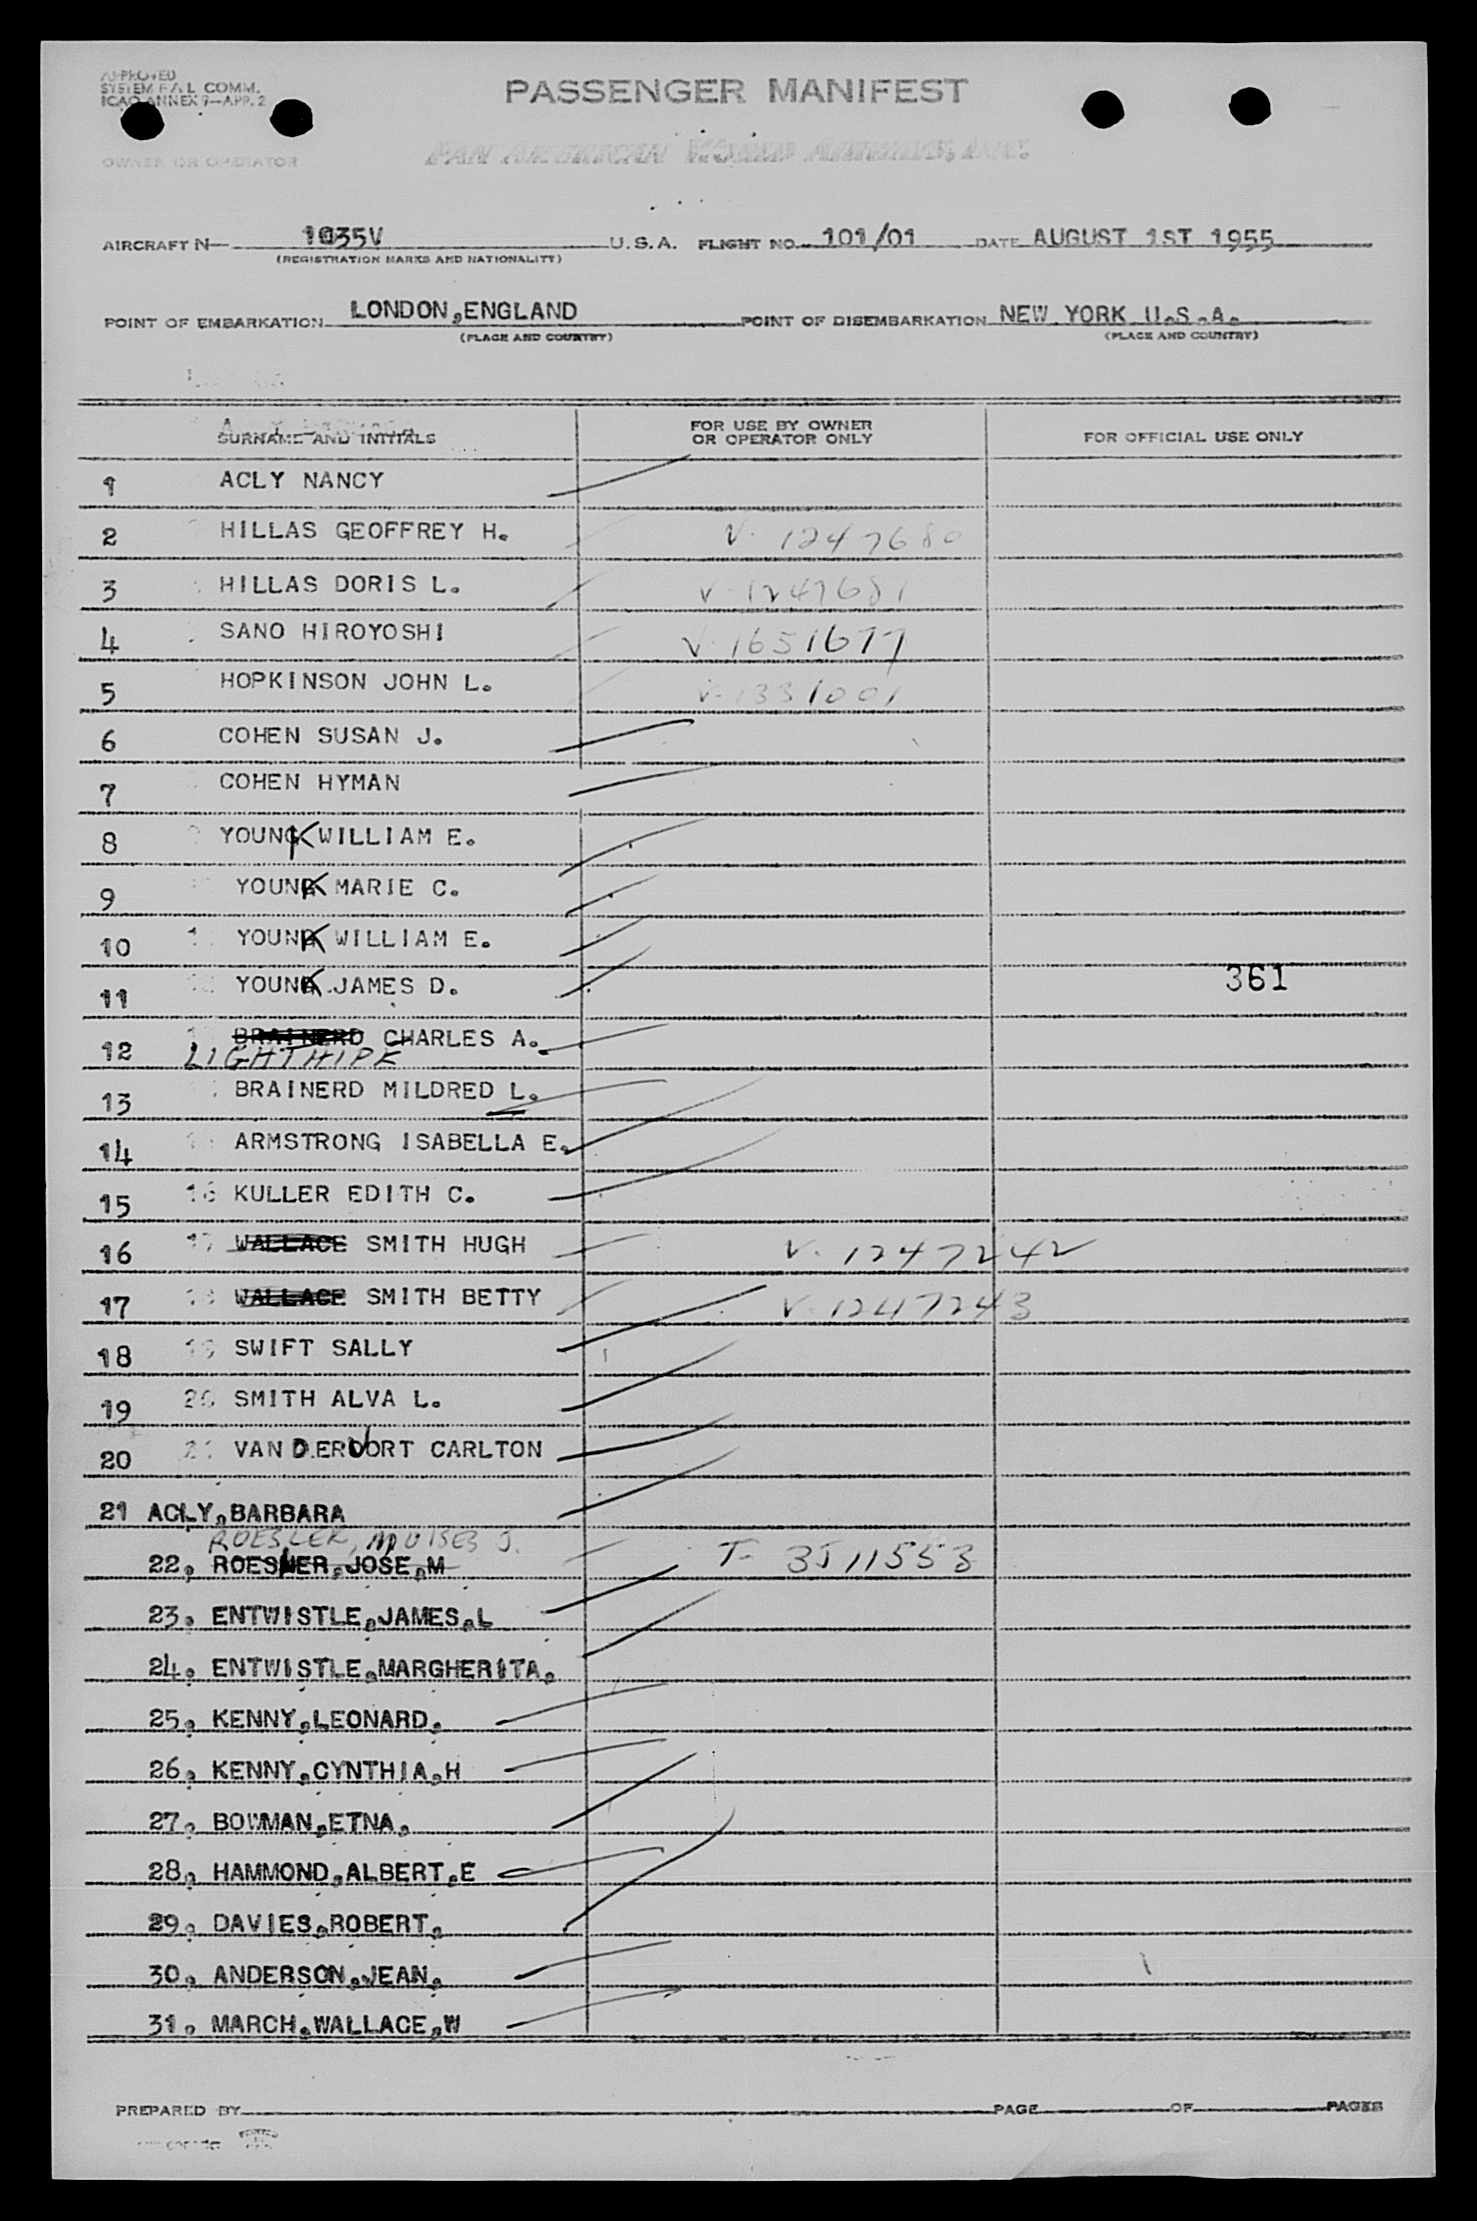 APPROVED
SYSTEM F/A L COMM.
ICAO ANNEX 9—APP. 2
PASSENGER MANIFEST
OWNER OR OPERATOR
PAN AMERICAN WORLD AIRWAYS, INC.
AIRCRAFT N— 1035V U.S.A. FLIGHT NO. 101/01 DATE AUGUST 1ST 1955
(REGISTRATION MARKS AND NATIONALITY)
POINT OF EMBARKATION LONDON,ENGLAND POINT OF DISEMBARKATION NEW YORK U.S.A.
(PLACE AND COUNTRY) (PLACE AND COUNTRY)
SURNAME AND INITIALS FOR USE BY OWNER OR OPERATOR ONLY FOR OFFICIAL USE ONLY
1 ACLY NANCY
2 HILLAS GEOFFREY H. V. 1247680
3 HILLAS DORIS L. V-1247681
4 SANO HIROYOSHI V-1651677
5 HOPKINSON JOHN L. V-1331001
6 COHEN SUSAN J.
7 COHEN HYMAN
8 YOUNK WILLIAM E.
9 YOUNK MARIE C.
10 YOUNK WILLIAM E.
11 YOUNK JAMES D. 361
12 BRAINERD CHARLES A.
LIGHTHIPE
13 BRAINERD MILDRED L.
14 ARMSTRONG ISABELLA E.
15 16 KULLER EDITH C.
16 17 WALLACE SMITH HUGH V. 1247242
17 18 WALLACE SMITH BETTY V. 1247243
18 19 SWIFT SALLY
19 20 SMITH ALVA L.
20 21 VAN DERVORT CARLTON
21 ACLY,BARBARA
ROESLER, MOISES J.
22, ROESLER,JOSE,M T- 3511553
23, ENTWISTLE,JAMES,L
24, ENTWISTLE,MARGHERITA,
25, KENNY,LEONARD,
26, KENNY,CYNTHIA,H
27, BOWMAN,ETNA,
28, HAMMOND,ALBERT,E
29, DAVIES,ROBERT,
30, ANDERSON,JEAN,
31, MARCH,WALLACE,W
PREPARED BY PAGE OF PAGES